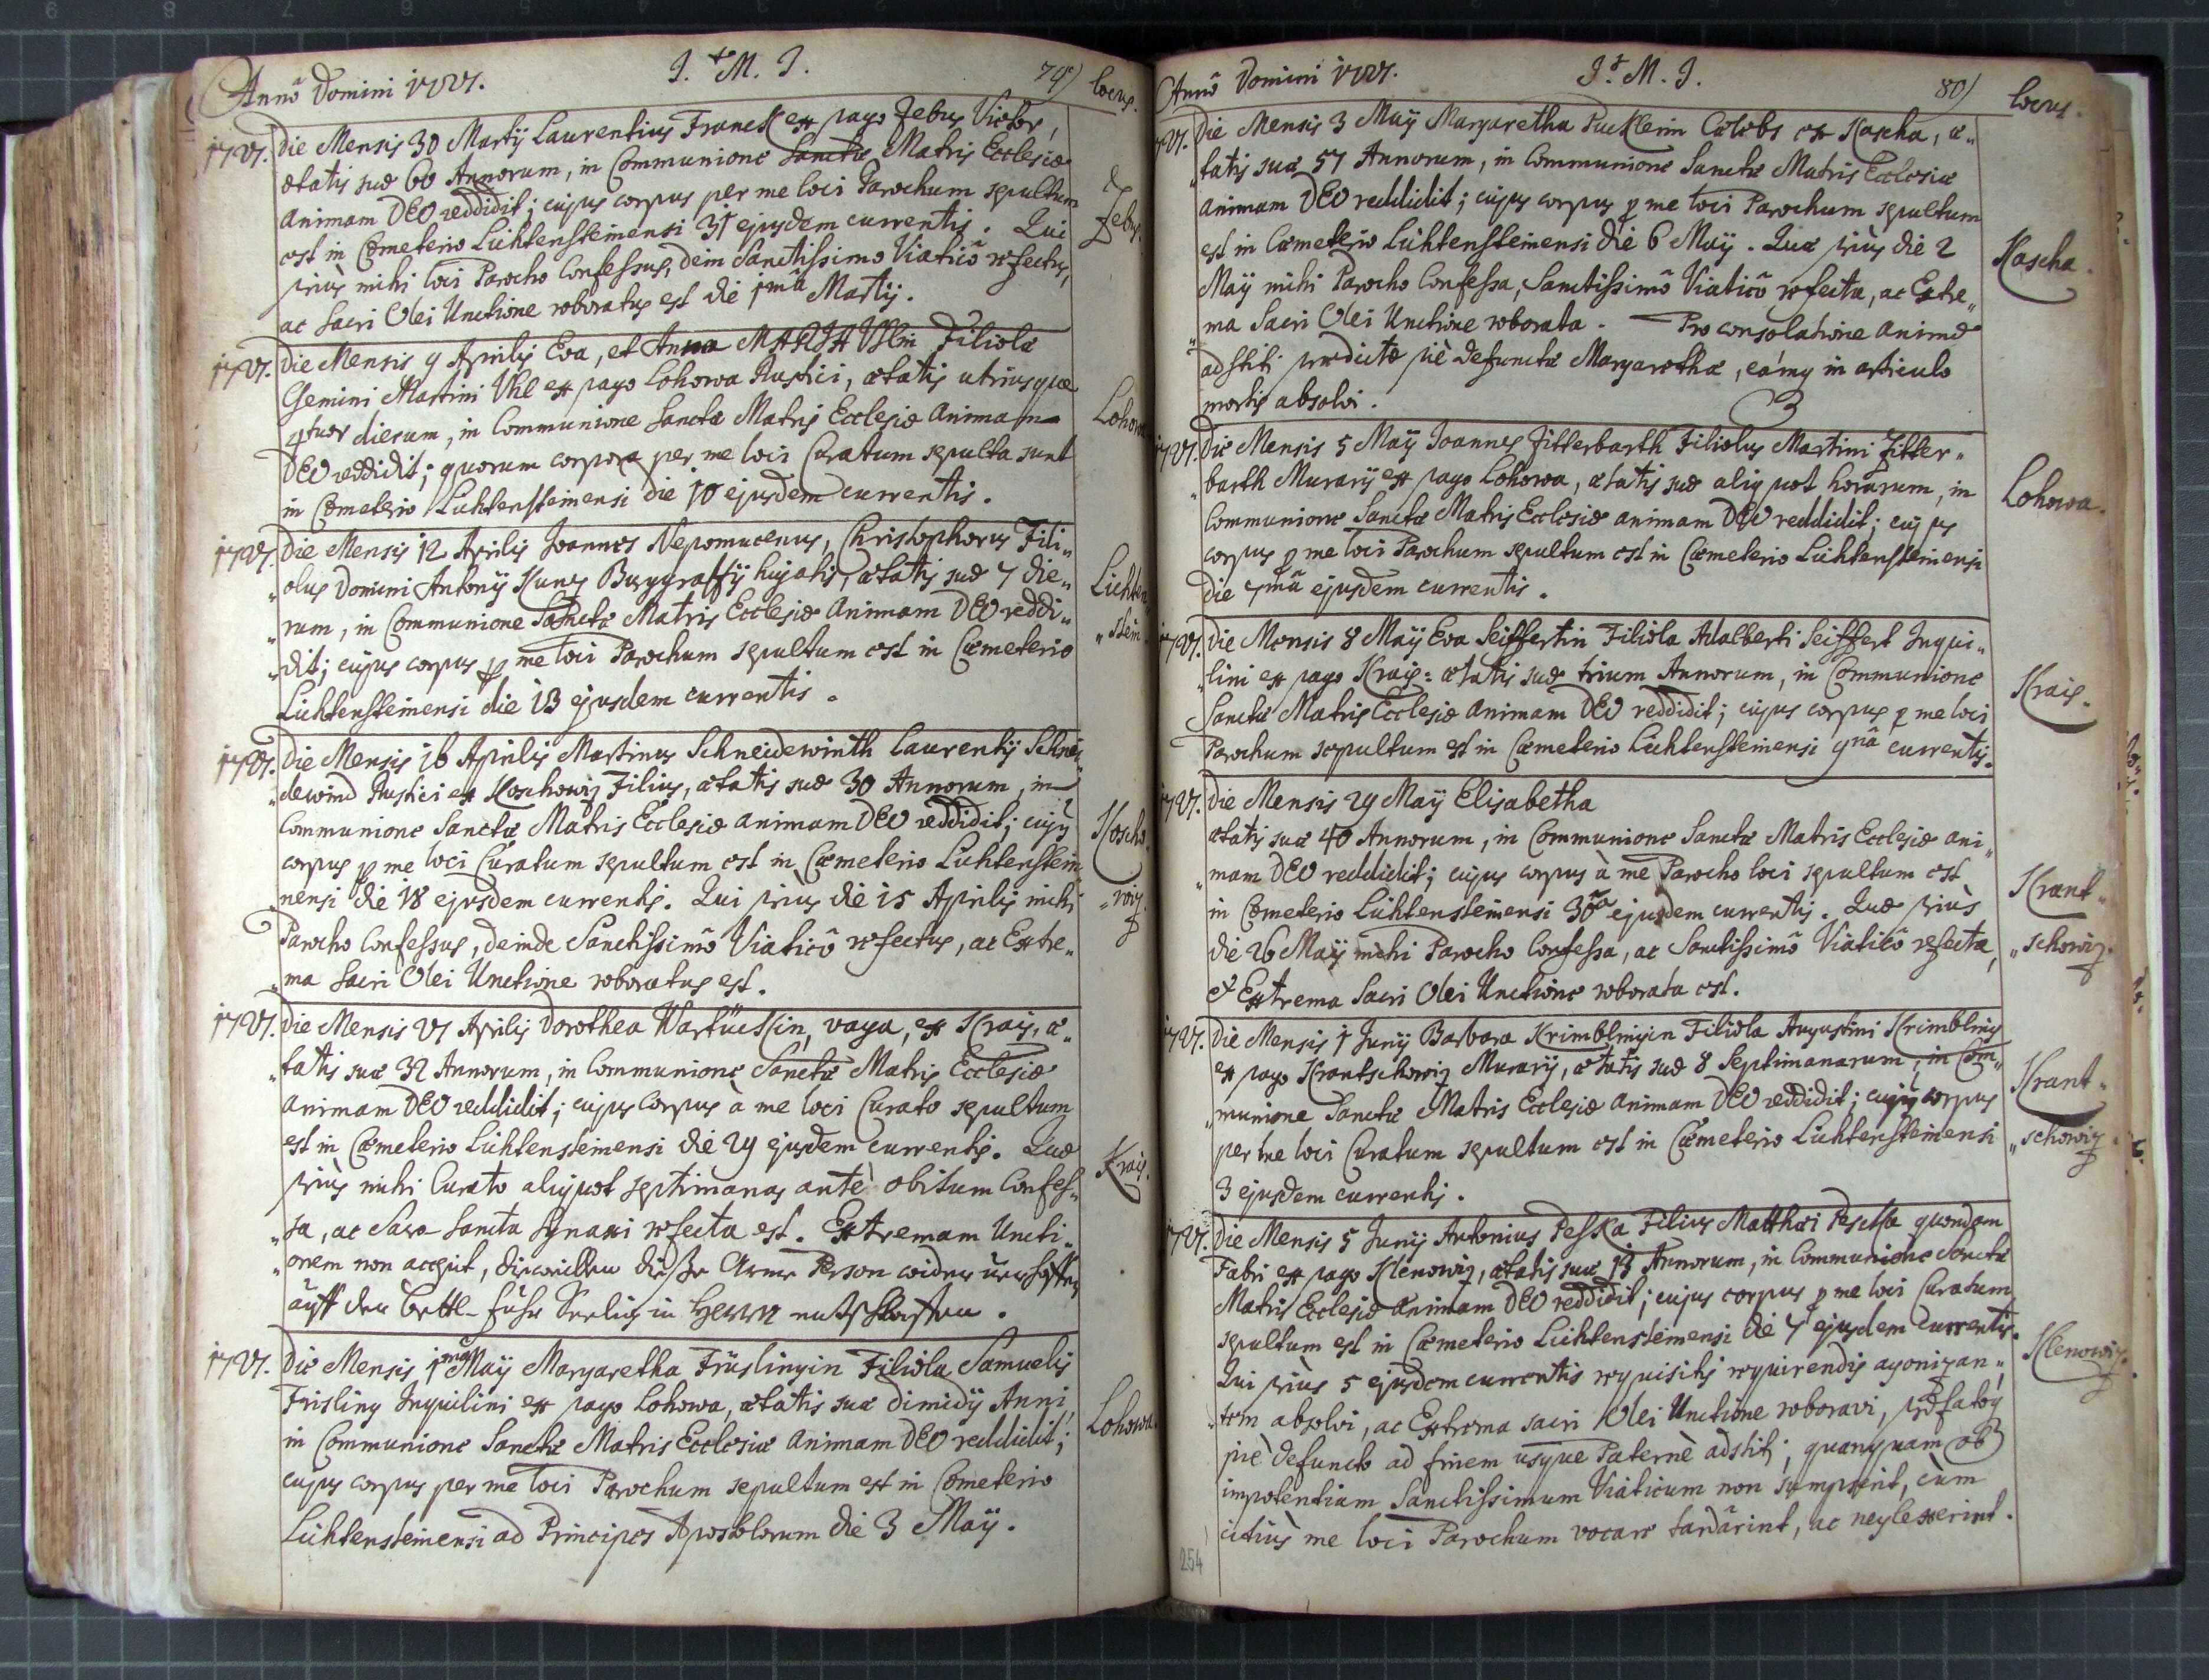 Annô Domini 1727. J. M. J. 79) locus.
1727. Die Mensis 30 Martij Laurentius Franck ex pago Zebus Victor,
ætatis suæ 60 Annorum, in Communione Sanctæ Matris Ecclesiæ
animam DEO reddidit; cujus corpus per me loci Parochum sepultum
est in Cœmeterio Lichtensteinensi 31 ejusdem currentis. Qui
priùs mihi loci Parocho Confessus, dein Sanctissimo Viaticô refectus,
ac Sacri Olei Unctione roboratus est die 1mâ Martij.
Zebus.
1727. Die Mensis 9 Aprilis Eva, et Anna MARIA Uhlin Filiolæ
Gemini Martini Uhl ex pago Lohowa Rustici, ætatis utriusque
4tuor dierum, in Communione Sanctæ Matris Ecclesiæ Animam
DEO reddidit; quorum corpora per me loci Curatum sepulta sunt
in Cœmeterio Lichtensteinensi die 10 ejusdem currentis.
Lohowa
1727. Die Mensis 12 Aprilis Joannes Nepomucenus, Christophorus Fili„
„olus Domini Antonij Kunz Burggraffij hujatis, ætatis suæ 7 die„
„rum, in Communione Sanctæ Matris Ecclesiæ Animam DEO reddi„
„dit; cujus corpus p me loci Parochum sepultum est in Cœmeterio
Lichtensteinensi die 13 ejusdem currentis.
Lichten„
„stein.
1727. Die Mensis 16 Aprilis Martinus Schneidewinth Laurentij Schnei„
„dewind Rustici ex Koschowiz Filius, ætatis suæ 30 Annorum, in
Communione Sanctæ Matris Ecclesiæ animam DEO reddidit; cujus
corpus p me loci Curatum sepultum est in Cœmeterio Lichtenstei„
„nensi die 18 ejusdem currentis. Qui priùs die 15 Aprilis mihi
Parocho Confessus, deinde Sanctissimô Viaticô refectus, ac Extre„
„ma Sacri Olei Unctione roboratus est.
Koscho„
„wiz
1727. Die Mensis 27 Aprilis Dorothea Wartückin, vaga, ex Krais, æ„
„tatis suæ 32 Annorum, in Communione Sanctæ Matris Ecclesiæ
animam DEO reddidit; cujus Corpus à me loci Curato sepultum
est in Cœmeterio Lichtensteinensi die 29 ejusdem currentis. Quæ
priùs mihi Curato aliquot septimanas antè obitum Confes„
„sa, ac Sacra Sancta Synaxi refecta est. Extremam Uncti„
„onem non accepit, dieweillen dieße Arme Person wider verhoffen
auff der Bettl-fuhr Seelig in Herrn entschlaffen.
Krais.
1727. Die Mensis 1mâ Maij Margaretha Früslingin Filiola Samuelis
Frisling Inquilini ex pago Lohowa, ætatis suæ dimidij Anni,
in Communione Sanctæ Matris Ecclesiæ Animam DEO reddidit;
cujus corpus per me loci Parochum sepultum est in Cœmeterio
Lichtensteinensi ad Principes Apostolorum die 3 Maij.
Lohowa.
Annô Domini 1727. J. M. J. 80) locus.
1727. Die Mensis 3 Maij Margaretha Pucklerin Cælebs ex Kascha, æ„
„tatis suæ 57 Annorum, in Communione Sanctæ Matris Ecclesiæ
animam DEO reddidit; cujus corpus p me loci Parochum sepultum
est in Cœmeterio Lichtensteinensi die 6 Maij. Quæ priùs die 2
Maij mihi Parocho Confessa, Sanctissimô Viaticô refecta, ac Extre„
„ma Sacri Olei Unctione roborata. Pro consolatione animæ
adstiti prædictæ piè defunctæ Margarethæ, eámq in articulo
mortis absolvi.
Kascha.
1727. Die Mensis 5 Maij Joannes Zitterbarth Filiolus Martini Zitter„
„barth Murarij ex pago Lohowa, ætatis suæ aliquot horarum, in
Communione Sanctæ Matris Ecclesiæ animam DEO reddidit; cujus
corpus p me loci Parochum sepultum est in Cœmeterio Lichtensteinensi
die 7mâ ejusdem currentis.
Lohowa.
1727. Die Mensis 8 Maij Eva Seiffertin Filiola Adalberti Seiffert Inqui„
„lini ex pago Krais: ætatis suæ trium Annorum, in Communione
Sanctæ Matris Ecclesiæ animam DEO reddidit; cujus corpus p me loci
Parochum sepultum est in Cœmeterio Lichtensteinensi 9nâ currentis.
Krais.
1727. Die Mensis 29 Maij Elisabetha
ætatis suæ 40 Annorum, in Communione Sanctæ Matris Ecclesiæ ani„
„mam DEO reddidit; cujus corpus à me Parocho loci sepultum est
in Cœmeterio Lichtensteinensi 30 ejusdem currentis. Quæ priùs
die 26 Maij mihi Parocho Confessa, ac Sanctissimô Viaticô refecta,
et Extrema Sacri Olei Unctione roborata est.
Krant„
„schowiz.
1727. Die Mensis 1 Junij Barbara Krimblingin Filiola Augustini Krimbling
ex pago Krantschowiz Murarij, ætatis suæ 8 Septimanarum, in Com„
„munione Sanctæ Matris Ecclesiæ animam DEO reddidit; cujus corpus
per me loci Curatum sepultum est in Cœmeterio Lichtensteinensi
3 ejusdem currentis.
Krant„
„schowiz
1727. Die Mensis 5 Junij Antonius Peska Filius Matthæi Peschka quondam
Fabri ex pago Klenowiz, ætatis suæ 13 Annorum, in Communione Sanctæ
Matris Ecclesiæ animam DEO reddidit; cujus corpus p me loci Curatum
sepultum est in Cœmeterio Lichtensteinensi die 7 ejusdem currentis.
Qui priùs 5 ejusdem currentis requisitis requirendis agonizan„
„tem absolvi, ac Extrema sacri Olei Unctione roboravi, præfatoq
piè defuncto ad finem usque Paternè adstiti; quanquam ob
impotentiam Sanctissimum Viaticum non sumpserit, cùm
citiùs me loci Parochum vocare tardârint, ac neglexerint.
Klenowiz.
254